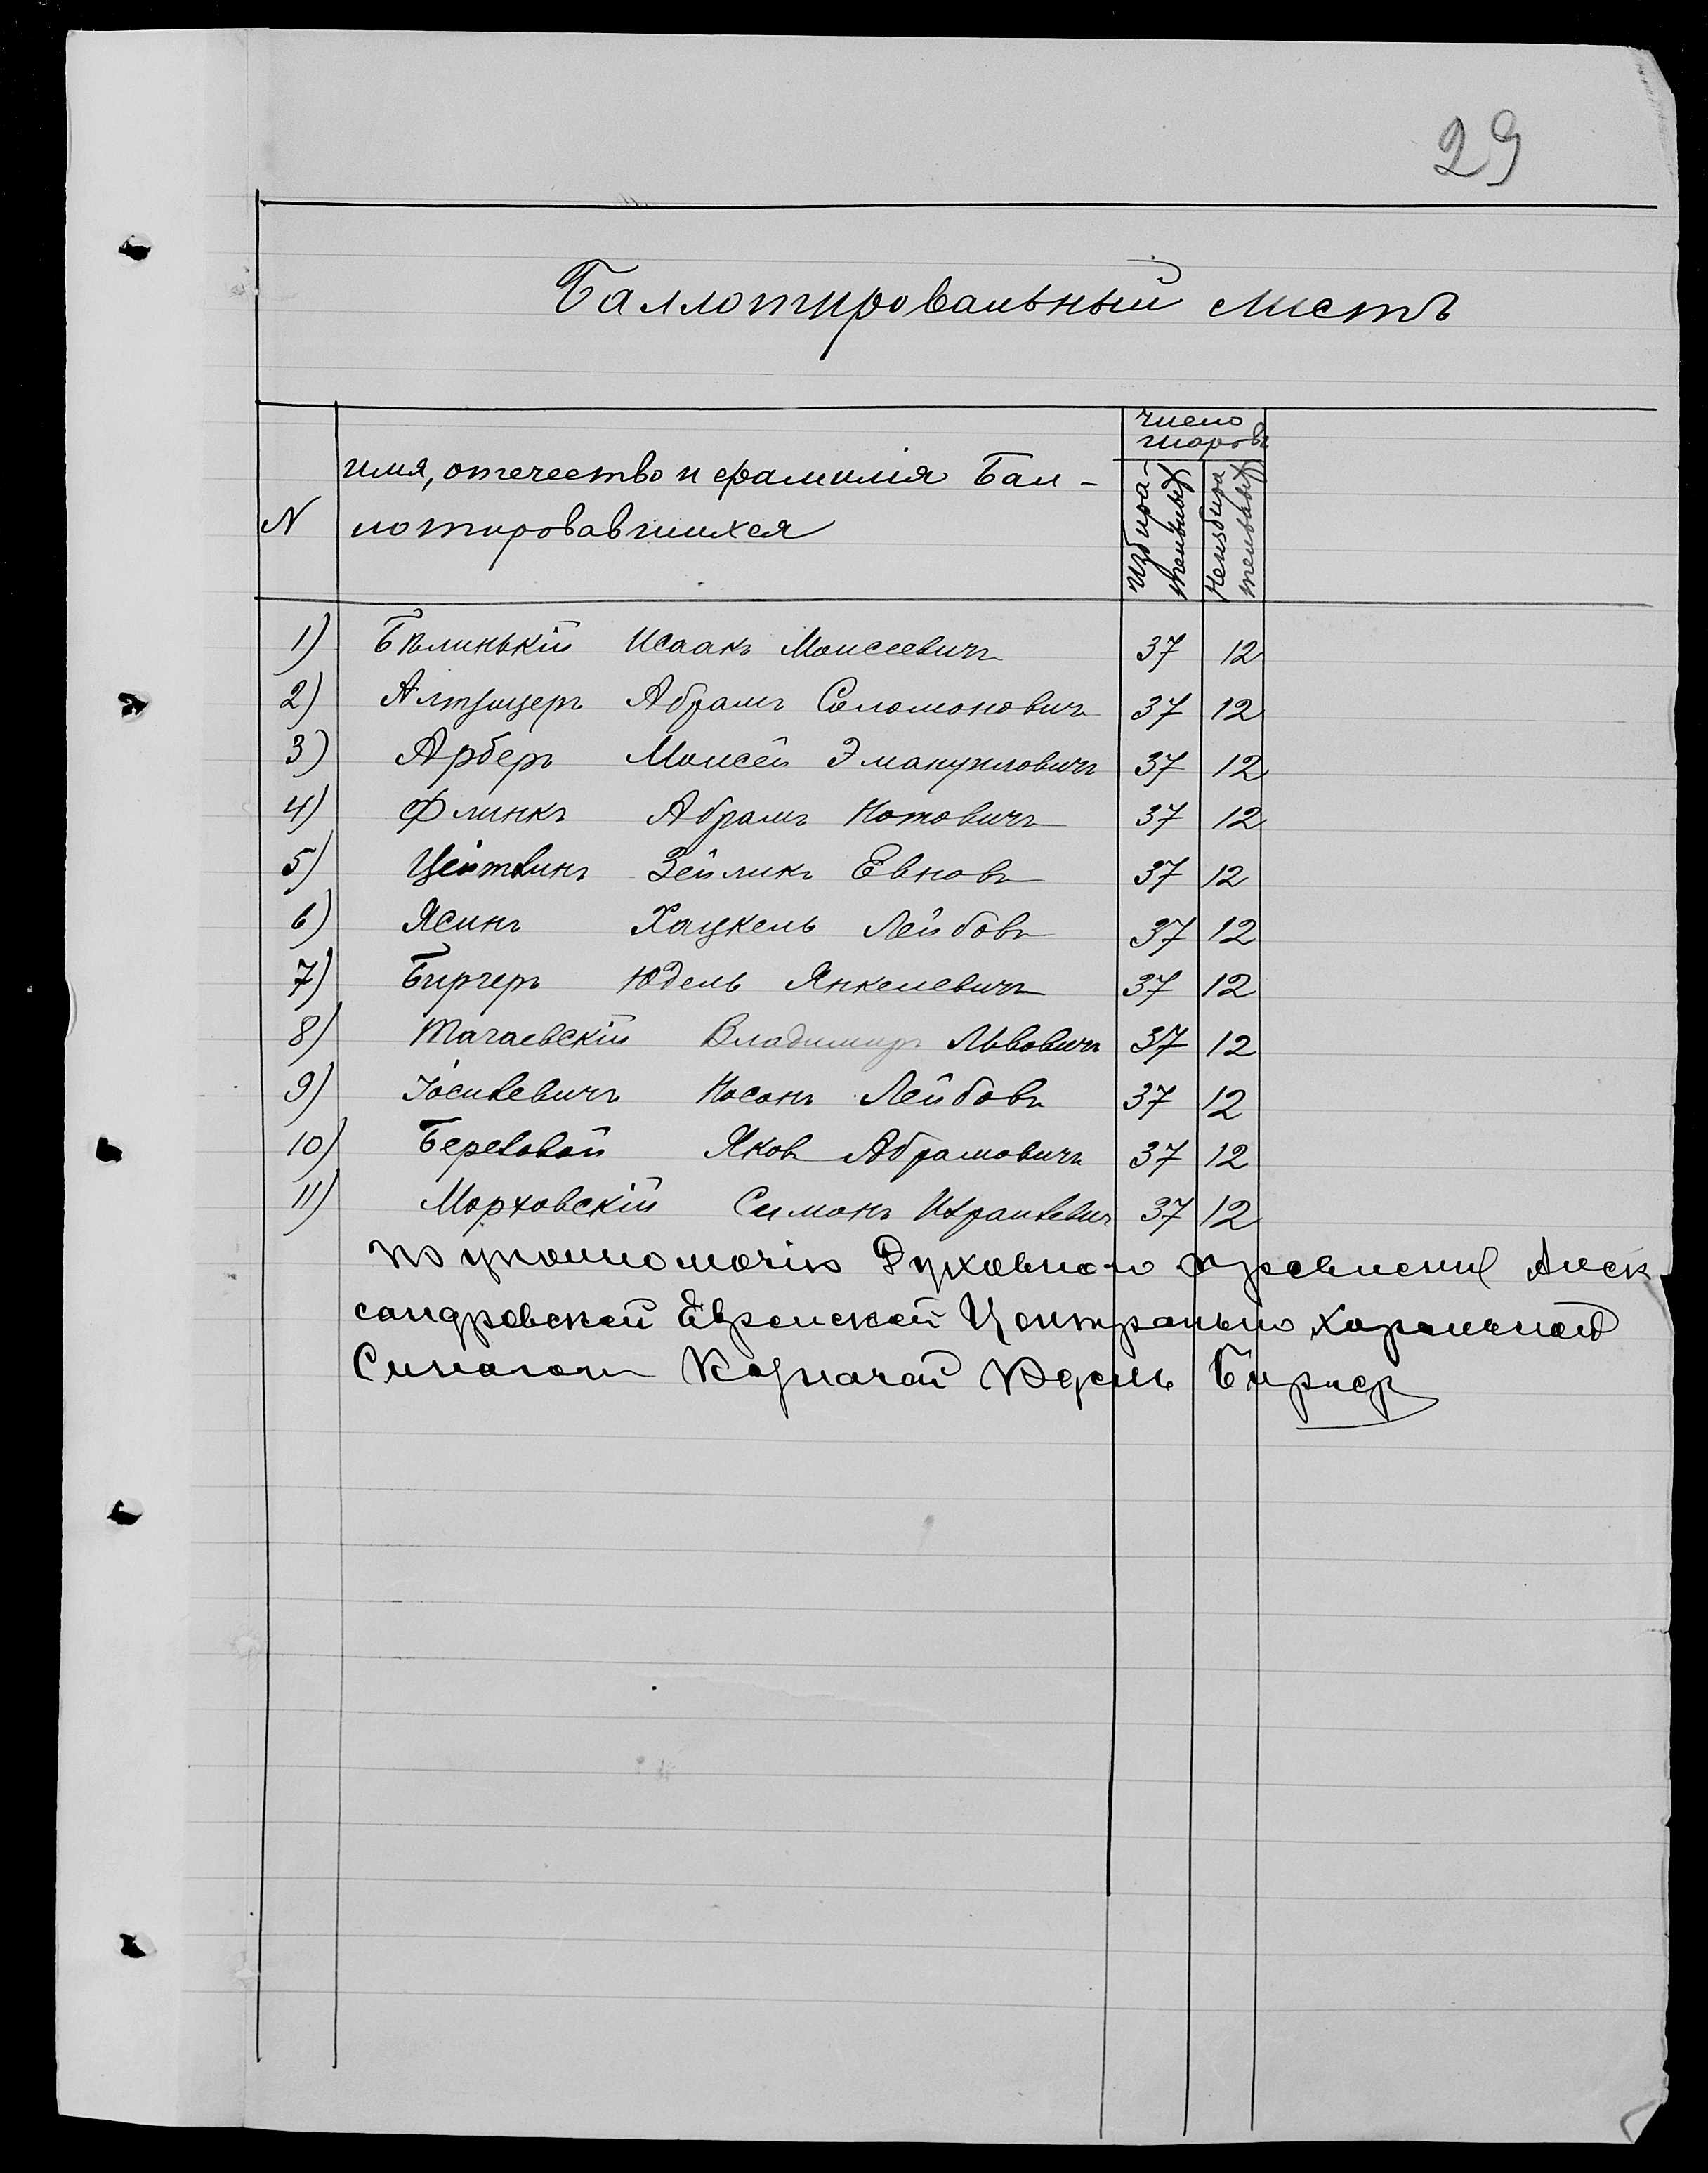 29
Баллотировальный листъ
N
имя, отечество и фамилія Бал-
лотировавшихся
число
шаровъ
избира-
тельныхъ
неизбира
тельныхъ
1) Бѣлинькій Исаакъ Моисеевичъ 37 12
2) Абрамъ Соломоновичъ 37 12
3) Арберъ Моисей Эмануиловичъ 37 12
4) Флинкъ Абрамъ Нотовичъ 37 12
5) Цейтлинъ Зейликъ Евновъ 37 12
6) Ясинъ Хацкель Лейбовъ 37 12
7) Биргеръ Юдель Янкелевичъ 37 12
8) Тагаевскій Владимиръ Львовичъ 37 12
9) Іосилевичъ Носонъ Лейбовъ 37 12
10) Береговой Яковъ Абрамовичъ 37 12
11) Морховскій Симонъ Израилевичъ 37 12
по уполномочію Духовного правленія Алек
сандровской Еврейской Центрально Хоральной
Синагоги Казначей Юдель Биргер